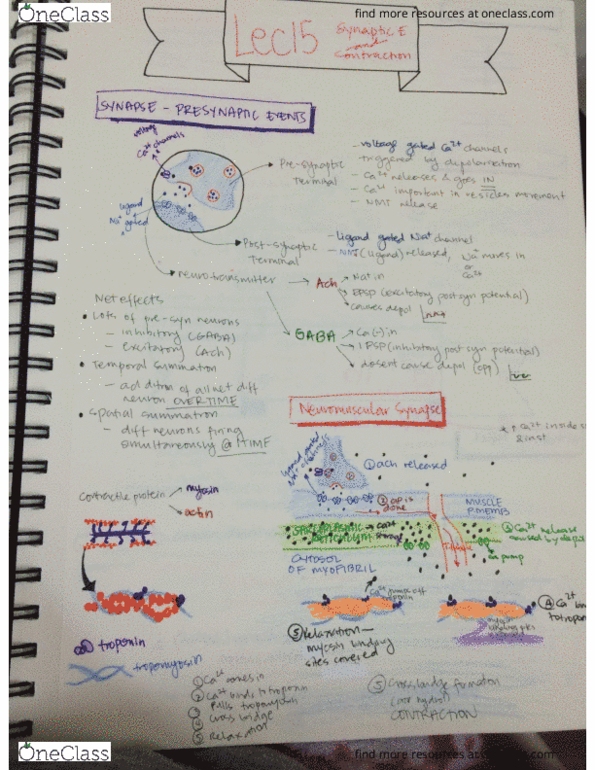 OneClass
find more resources at oneclass.com
Lec15
Synaptic E
and
Contraction
SYNAPSE - PRESYNAPTIC EVENTS
voltage
Ca2+ channels
Pre-synaptic
Terminal
- voltage gated Ca2+ channels
triggered by depolarization
- Ca2+ releases & goes IN
- Ca2+ important in vesicles movement
- NMT release
ligand
Na+ gated
Post-synaptic
Terminal
- Ligand gated Na+ channel
- NMT (ligand) released, Na+ moves in
or
Ca2+
neurotransmitter
Ach
Na+ in
EPSP (excitatory post syn potential)
causes depol
GABA
Ca (-) in
IPSP (inhibitory post syn potential)
doesnt cause depol (opp)
Net effects
• Lots of pre-syn neurons
- inhibitory (GABA)
- excitatory (Ach)
• Temporal summation
- addition of all net diff
neuron OVERTIME
• Spatial summation
- diff neurons firing
simultaneously @ 1TIME
Neuromuscular Synapse
① ach released
② AP is
done
MUSCLE
SARCOPLASMIC
RETICULUM
Ca2+
storage
③ Ca2+ release
caused by depol
pump
CYTOSOL
OF MYOFIBRIL
contractile protein
myosin
actin
troponin
tropomyosin
④ Ca2+
⑤ Relaxation -
myosin binding
sites covered
① Ca2+ comes in
② Ca2+ binds to troponin
③ Pulls tropomyosin
④ Cross bridge
⑤ Relaxation
⑤ Cross bridge formation
CONTRACTION
OneClass
find more resources at oneclass.com